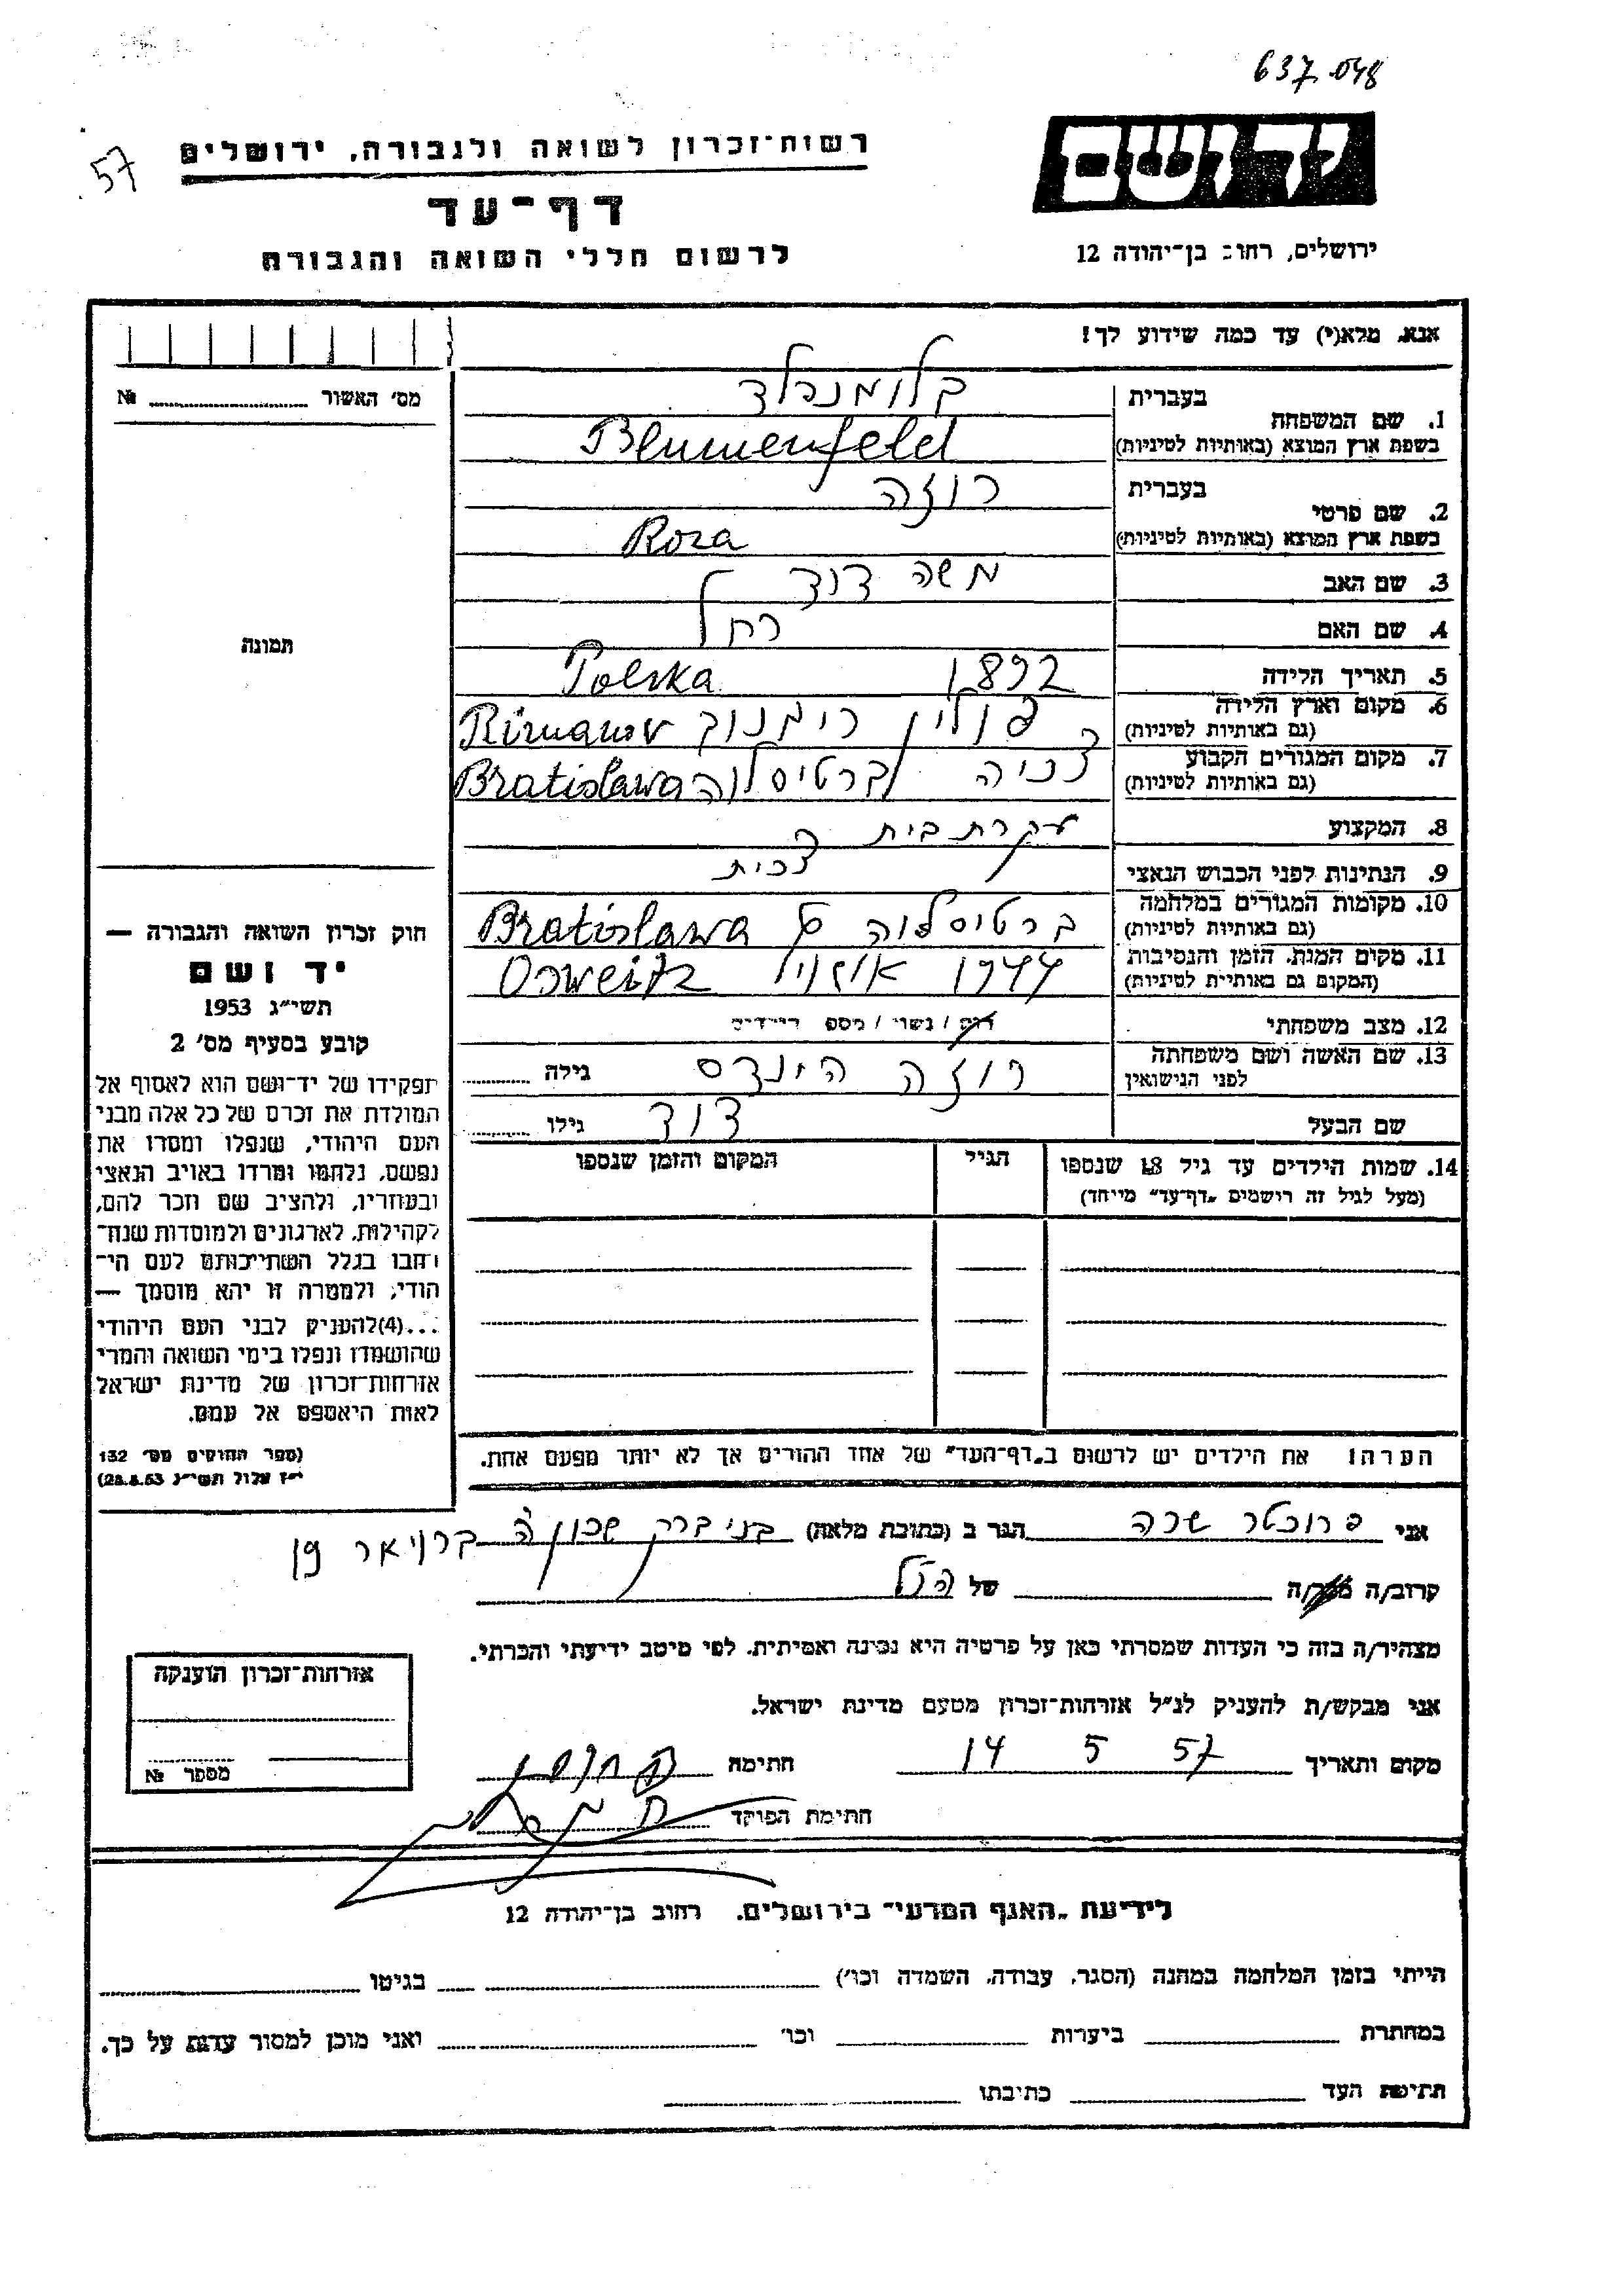 637.048
57
יד ושם
רשות־זכרון לשואה ולגבורה, ירושלים
דף־עד
לרשום חללי השואה והגבורה
ירושלים, רחוב בן־יהודה 12
אנא, מלא(י) עד כמה שידוע לך!
מס׳ האשור № 
1. שם המשפחה
בעברית בלומנפלד
בשפת ארץ המוצא (באותיות לטיניות) Blumenfeld
2. שם פרטי
בעברית רוזה
בשפת ארץ המוצא (באותיות לטיניות) Roza
3. שם האב משה דוד
4. שם האם רחל
תמונה
5. תאריך הלידה 1892 Polska
6. מקום וארץ הלידה פולין רימנוב Rimanov
(גם באותיות לטיניות)
7. מקום המגורים הקבוע צ׳כיה ברטיסלוה Bratislawa
(גם באותיות לטיניות)
8. המקצוע עקרת בית
9. הנתינות לפני הכבוש הנאצי צ׳כית
10. מקומות המגורים במלחמה ברטיסלוה Bratislawa
(גם באותיות לטיניות)
11. מקום המות, הזמן והנסיבות 1944 Osweitz
(המקום גם באותיות לטיניות)
12. מצב משפחתי רוק / נשוי / מספר ילדים
13. שם האשה ושם משפחתה רוזה הינדס גילה
לפני הנישואין
שם הבעל דוד גילו
14. שמות הילדים עד גיל 18 שנספו הגיל המקום והזמן שנספו
(מעל לגיל זה רושמים „דף־עד” מיוחד)
הערה: את הילדים יש לרשום ב„דף־העד” של אחד ההורים אך לא יותר מפעם אחת.
חוק זכרון השואה והגבורה —
יד ושם
תשי״ג 1953
קובע בסעיף מס׳ 2
תפקידו של יד־ושם הוא לאסוף אל
המולדת את זכרם של כל אלה מבני
העם היהודי, שנפלו ומסרו את
נפשם, נלחמו ומרדו באויב הנאצי
ובעוזריו, ולהציב שם וזכר להם,
לקהילות, לארגונים ולמוסדות שנח־
רבו בגלל השתייכותם לעם הי־
הודי; ולמטרה זו יהא מוסמך —
...(4)להעניק לבני העם היהודי
שהושמדו ונפלו בימי השואה והמרי
אזרחות־זכרון של מדינת ישראל
לאות היאספם אל עמם.
(ספר החוקים מס׳ 132
י״ז אלול תשי״ג 28.8.53)
אני פרוכטר שרה הגר ב (כתובת מלאה) בני ברק שכון ה׳
קרוב/ה מכר/ה של הנ״ל
מצהיר/ה בזה כי העדות שמסרתי כאן על פרטיה היא נכונה ואמיתית, לפי מיטב ידיעתי והכרתי.
אני מבקש/ת להעניק לנ״ל אזרחות־זכרון מטעם מדינת ישראל.
מקום ותאריך 14 5 57 חתימה
חתימת הפוקד
אזרחות־זכרון הוענקה
מספר №
לידיעת „האגף המדעי” בירושלים, רחוב בן־יהודה 12
הייתי בזמן המלחמה במחנה (הסגר, עבודה, השמדה וכו׳) בגיטו
במחתרת ביערות וכו׳ ואני מוכן למסור עדות על כך.
חתימת העד כתיבתו